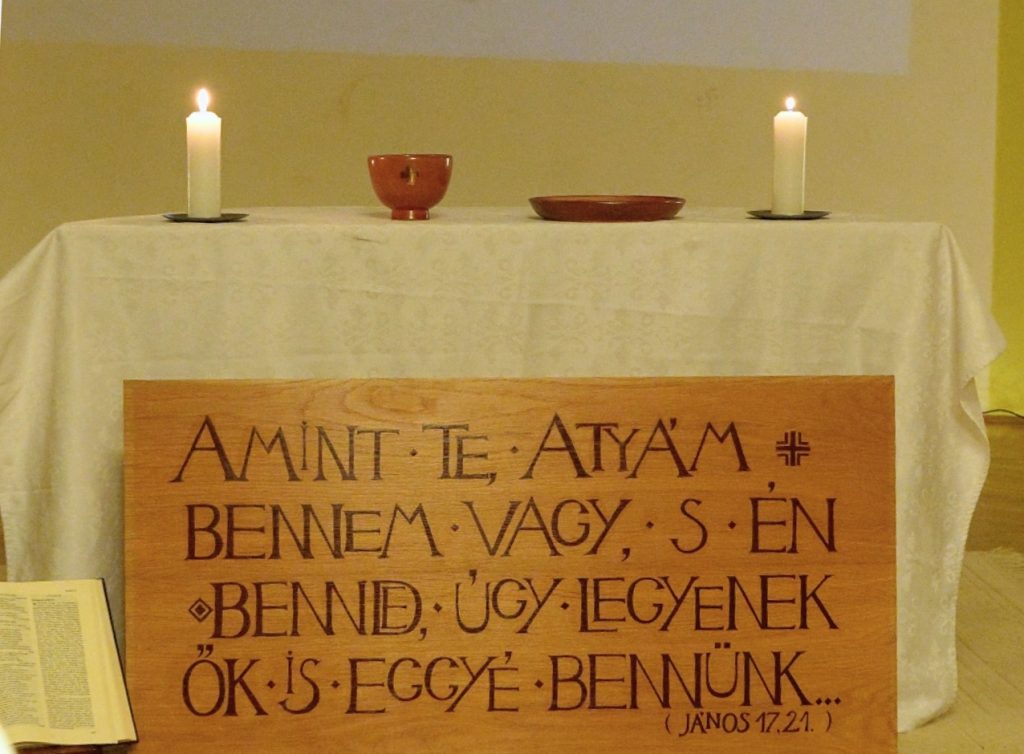 AMINT · TE, · ATYÁM
BENNEM · VAGY, · S · ÉN
BENNED, · ÚGY · LEGYENEK
ŐK · IS · EGGYÉ · BENNÜNK...
(JÁNOS 17,21.)